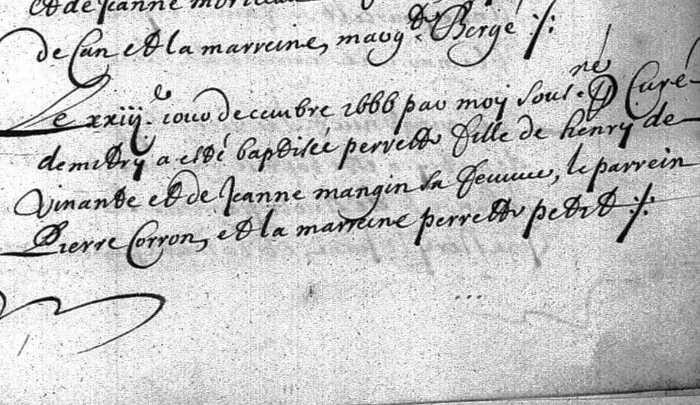 et de Jeanne
de Can et la marreine, marg.te Bergé
Le xxiij.e jour decembre 1666 par moy sous.né Curé
demitry a esté baptisée perrette fille de henry de
Vinante et de Jeanne mangin sa femme, le parrein
Pierre Corron, et la marreine perrette petit